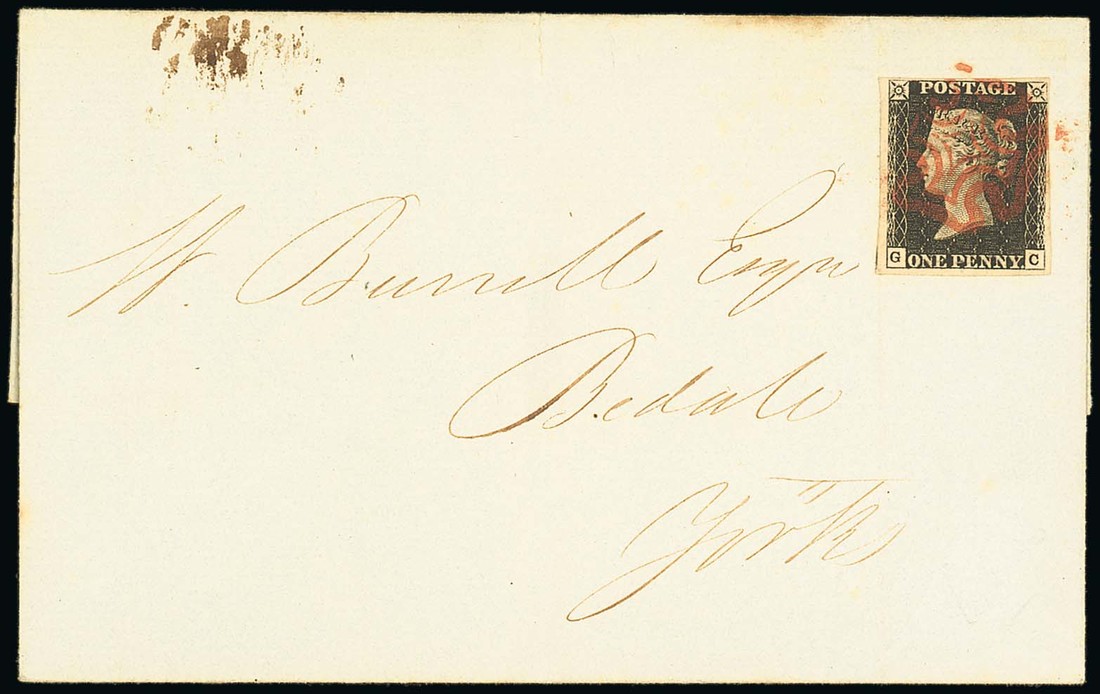 POSTAGE
G ONE PENNY C
W. Burrill Esqr
Bedale
York